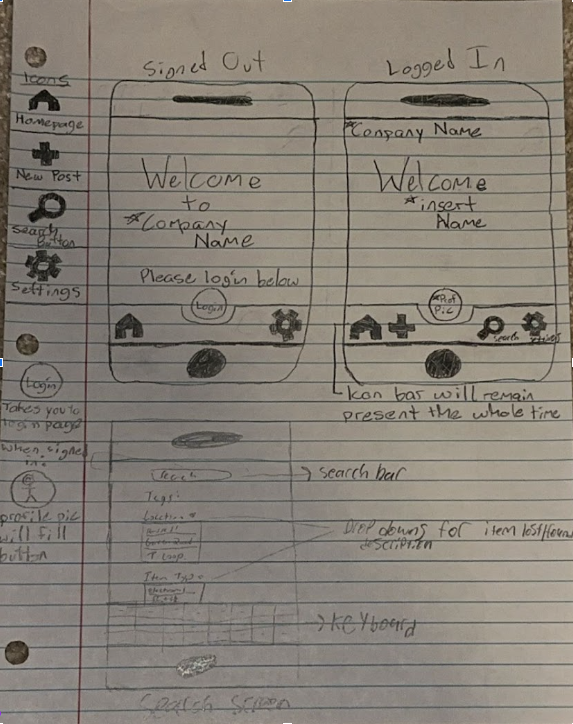 Icons
Homepage
New Post
Search
Button
Settings
Login
Takes you to
login page
When signed
in:
profile pic
will fill
button
Signed Out
Welcome
to
*Company
Name
Please login below
Login
Logged In
*Company Name
Welcome
*insert
Name
*Prof
Pic
Search
Icon bar will remain
present the whole time
Search
search bar
Tags:
Drop downs for item lost/found
description
Keyboard
Search Screen